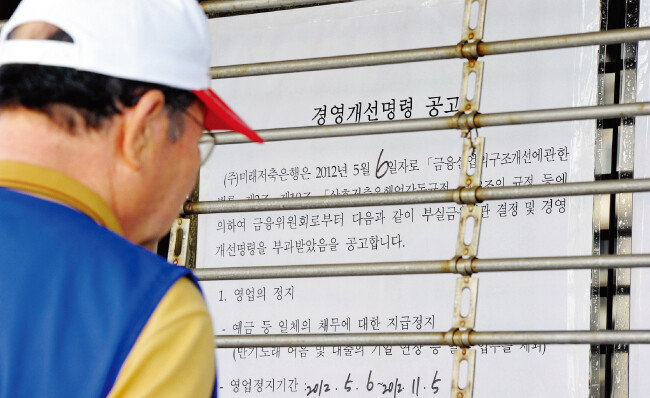 경영개선명령 공고
(주)미래저축은행은 2012년 5월 6일자로 「금융산업의구조개선에관한
법률 제2조, 제10조 「상호저축은행업감독규정 의 규정 등에
의하여 금융위원회로부터 다음과 같이 부실금융기관 결정 및 경영
개선명령을 부과받았음을 공고합니다.
1. 영업의 정지
- 예금 등 일체의 채무에 대한 지급정지
(만기도래 어음 및 대출의 기일 연장 등 업무를 제외)
- 영업정지기간 : 2012. 5. 6 ~ 2012. 11. 5